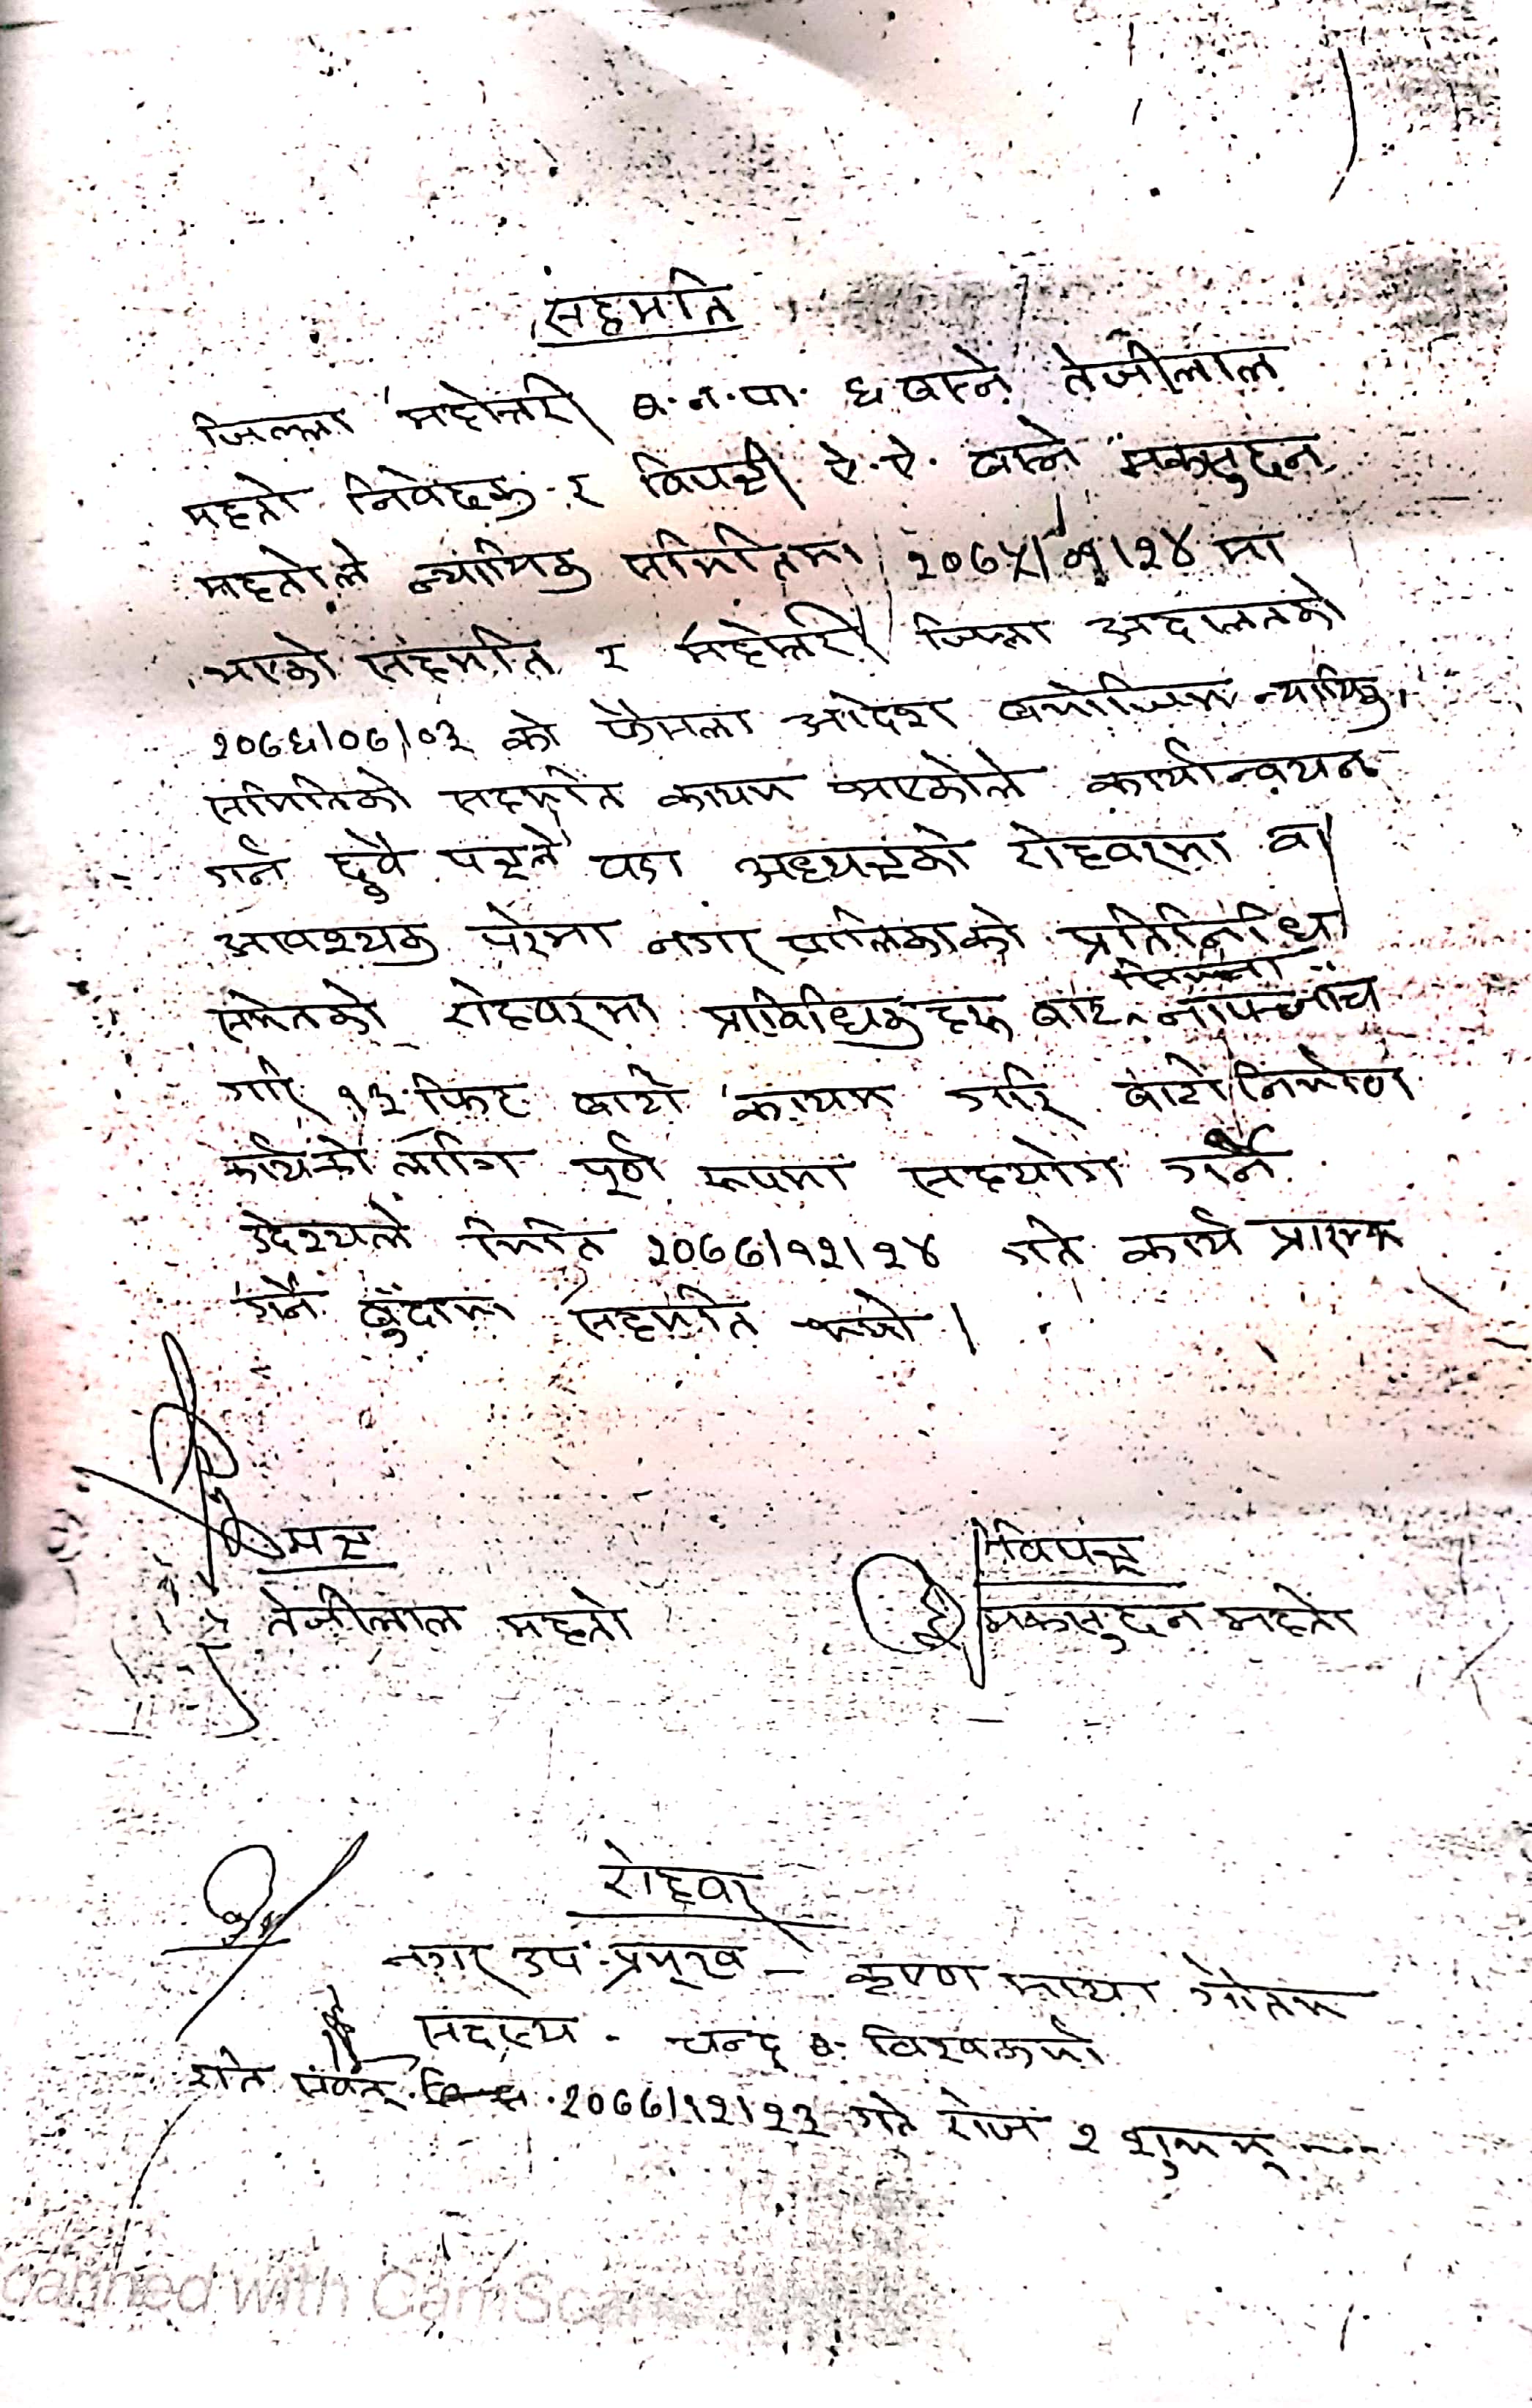 सहमति
जिल्ला महोत्तरी ब.न.पा. ६ बस्ने तेजीलाल
महतो निवेदक र विपक्षी ऐ.ऐ. बस्ने मकसुदन
महतोले न्यायिक समितिमा २०७५/०१/२४ मा
भएको सहमति र महोत्तरी जिल्ला अदालतको
२०७६/०७/०३ को फैसला आदेश बमोजिम न्यायिक
समितिको सहमति कायम भएकोले कार्यान्वयन
गर्न दुवै पक्षले वडा अध्यक्षको रोहवरमा वा
आवश्यक परेमा नगरपालिकाको प्रतिनिधि
समेतको रोहवरमा प्राविधिकहरू बाट सिमाना नापजाँच
गरि १३ फिट बाटो कायम गरि बाटो निर्माण
कार्यको लागि पूर्ण रूपमा सहयोग गर्ने
उदेश्यले मिति २०७७/१२/२४ गते कार्य प्रारम्भ
गर्ने बुँदामा सहमति भयो।
पक्ष
तेजीलाल महतो
विपक्ष
मकसुदन महतो
रोहवर
नगर उप-प्रमुख - कृष्ण माया गौतम
सदस्य - चन्द्र ब. विश्वकर्मा
इति संवत् २०७७/१२/२३ गते रोज २ शुभम्
Scanned with CamSc